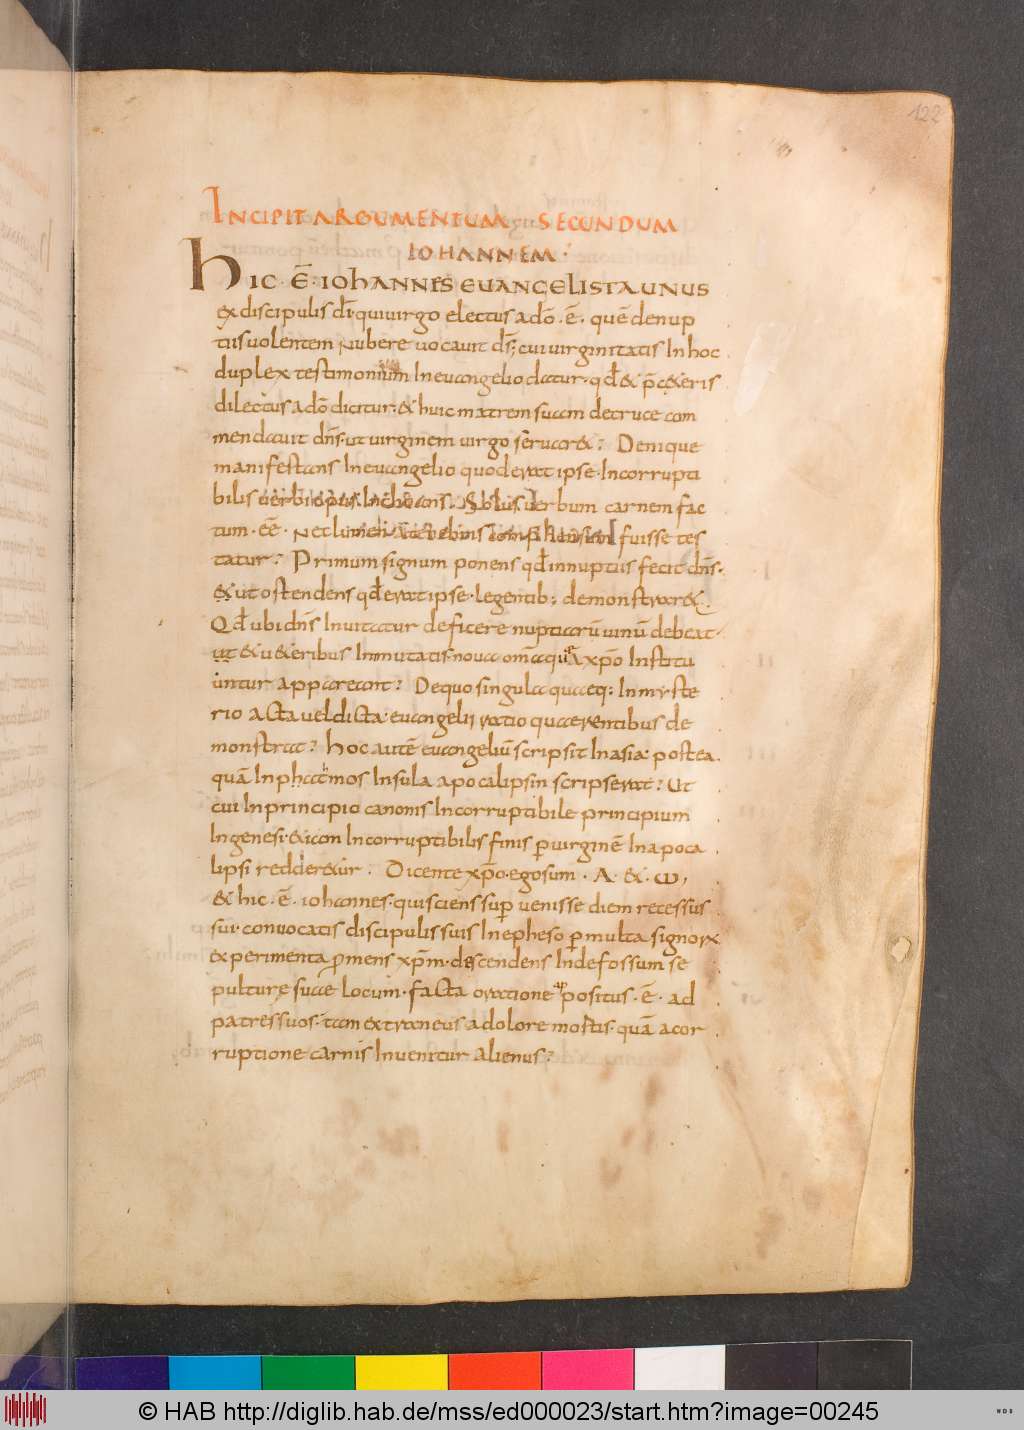 122
INCIPIT ARGUMENTUM SECUNDUM
IOHANNEM·
hIC·Ē·IOhANNES EUANGELISTA UNUS
ex discipulis dī·qui uirgo electus adō·ē·quē denup
tiis uolentem Nubere uocauit dś; cui uirginitatis In hoc
duplex testimonium In euangelio datur·qđ & p̄ c&eris
dilectus adō dicitur·& huic matrem suam decruce com
mendauit dnś·ut uirginem uirgo seruar&? Denique
manifestans In euangelio quod erat ipse·Incorrupti
bilis uerbi opus Inchoans·Solus uerbum carnem fac
tum·eē·Nec lumen a tenebris fuisse tes
tatur? Primum signum ponens qđ In nuptiis fecit dnś·
& ut ostendens qđ erat ipse·legentib; demonstrar&
Qđ ubi dnś Inuitatur deficere nuptiarū uinū debeat·
ut & u&eribus Inmutatis·noua omā quae axpō Institu
untur appareant? De quo singula quaeq; In myste
rio acta uel dicta·euangelii ratio quaerentibus de
monstrat? hoc autē euangeliū scripsit In asia·postea
quā In phatmos Insula apocalipsin scripserat? Ut
cui In principio canonis Incorruptibile principium
In genesi·& iam Incorruptibilis finis p̱ uirginē In apoca
lipsi redder&ur·Dicente xpō·ego sum·A·&·ω,
& hic·ē·iohannes·qui sciens sup̱uenisse diem recessus
sui·conuocatis discipulis suis In epheso p̱ multa signorꝝ
experimenta p̱mens xpm̄·descendens In defossum se
pulturę suae locum·facta oratione positus·ē·ad
patres suos·tam extraneus a dolore mortis·quā a cor
ruptione carnis Inuenitur alienus?
© HAB http://diglib.hab.de/mss/ed000023/start.htm?image=00245